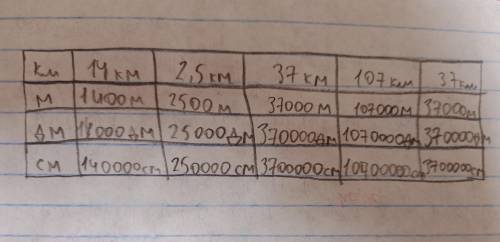 км 14 км 2,5 км 37 км 107 км 37 км
м 1400м 2500м 37000 м 107000м 37000м
дм 14000дм 25000дм 370000дм 1070000дм 370000дм
см 140000см 250000см 3700000см 10700000см 3700000см